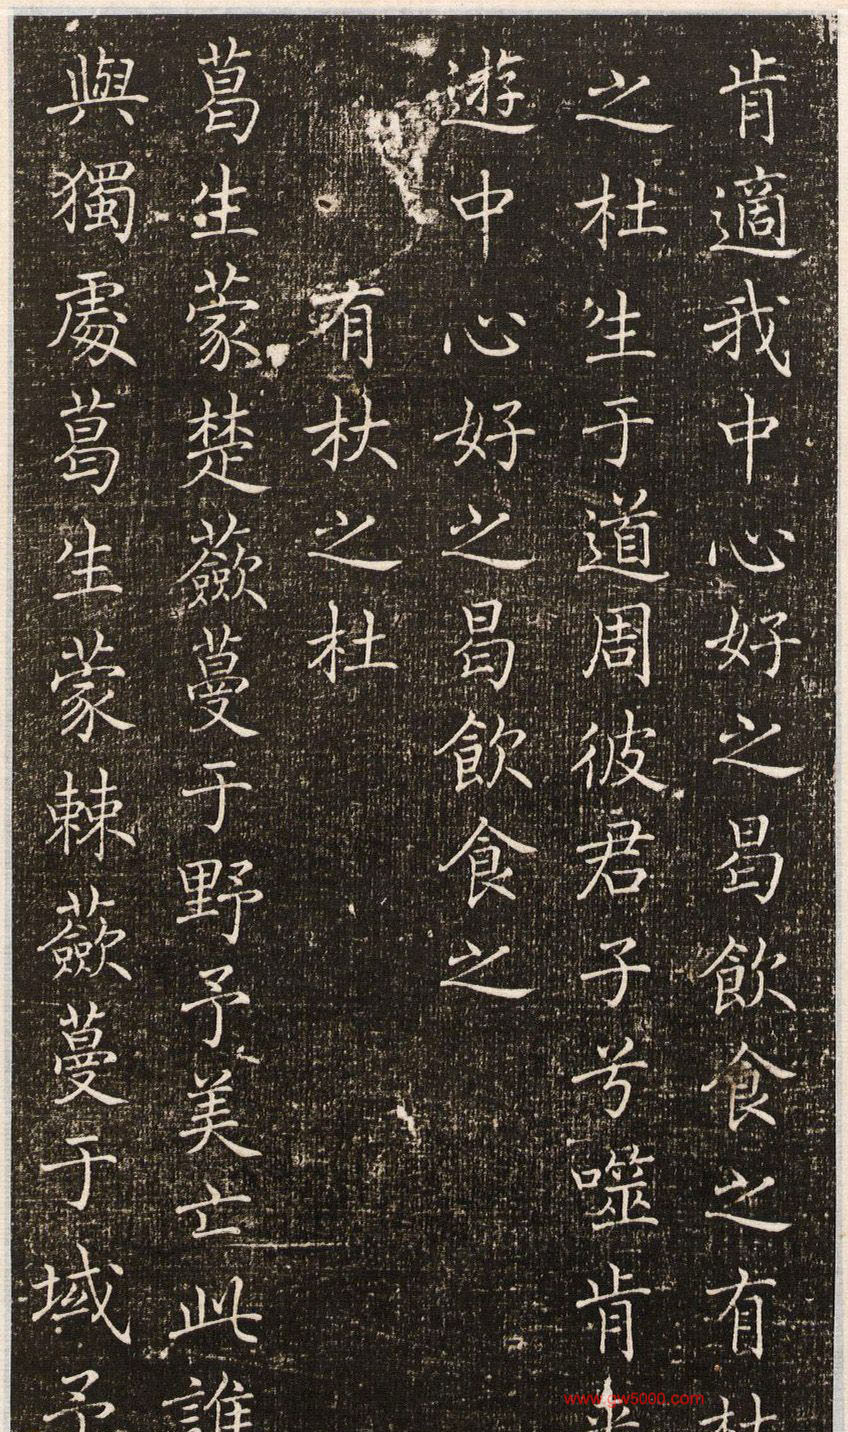 肯適我中心好之曷飲食之有
之杜生于道周彼君子兮噬肯
遊中心好之曷飲食之
有杕之杜
葛生蒙楚蘝蔓于野予美亡此誰
與獨處葛生蒙棘蘝蔓于域予
www.gw5000.com